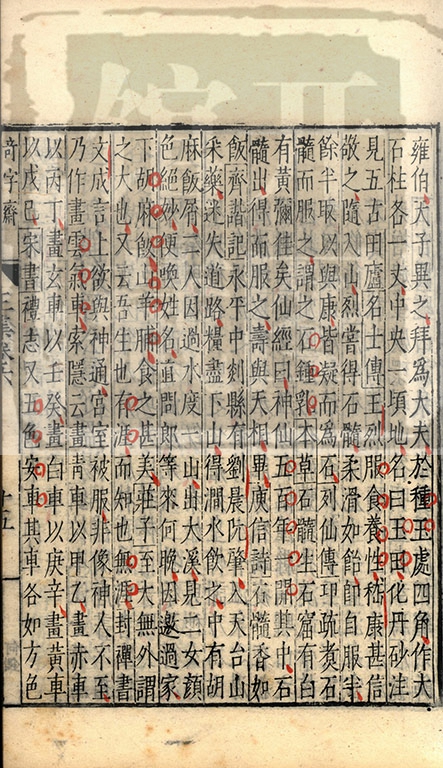 雍伯天子異之拜為大夫於種玉處四角作大
石柱各一丈中央一頃地名曰玉田化丹砂注
見五古田廬名士傳王烈服食養性嵇康甚信
敬之隨入山烈嘗得石髓柔滑如飴即自服半
餘半取以與康皆凝而為石列仙傳卭疏煑石
髓而服之謂之石鍾乳本草石髓生石窟有白
有黃彌佳矣仙經曰神仙五百年一開其中石
髓出得而服之壽與天相畢庾信詩石髓香如
飯齊諧記永平中剡縣有劉晨阮肇入天台山
采藥迷失道路糧盡下山得澗水飲之中有胡
麻飯屑二人因過水度一山出大溪見二女顔
色絕妙便喚姓名直問郎等來何晚因邀過家
下胡麻飯山羊脯食之甚美莊子至大無外謂
之大也又云吾生也有涯而知也無涯封禪書
文成言上欲與神通宮室被服非像神人不至
乃作畫雲氣車索隱云畫青車以甲乙畫赤車
以丙丁畫玄車以壬癸畫白車以庚辛畫黃車
以戊巳宋書禮志又五色安車其車各如方色
奇字齋
十五